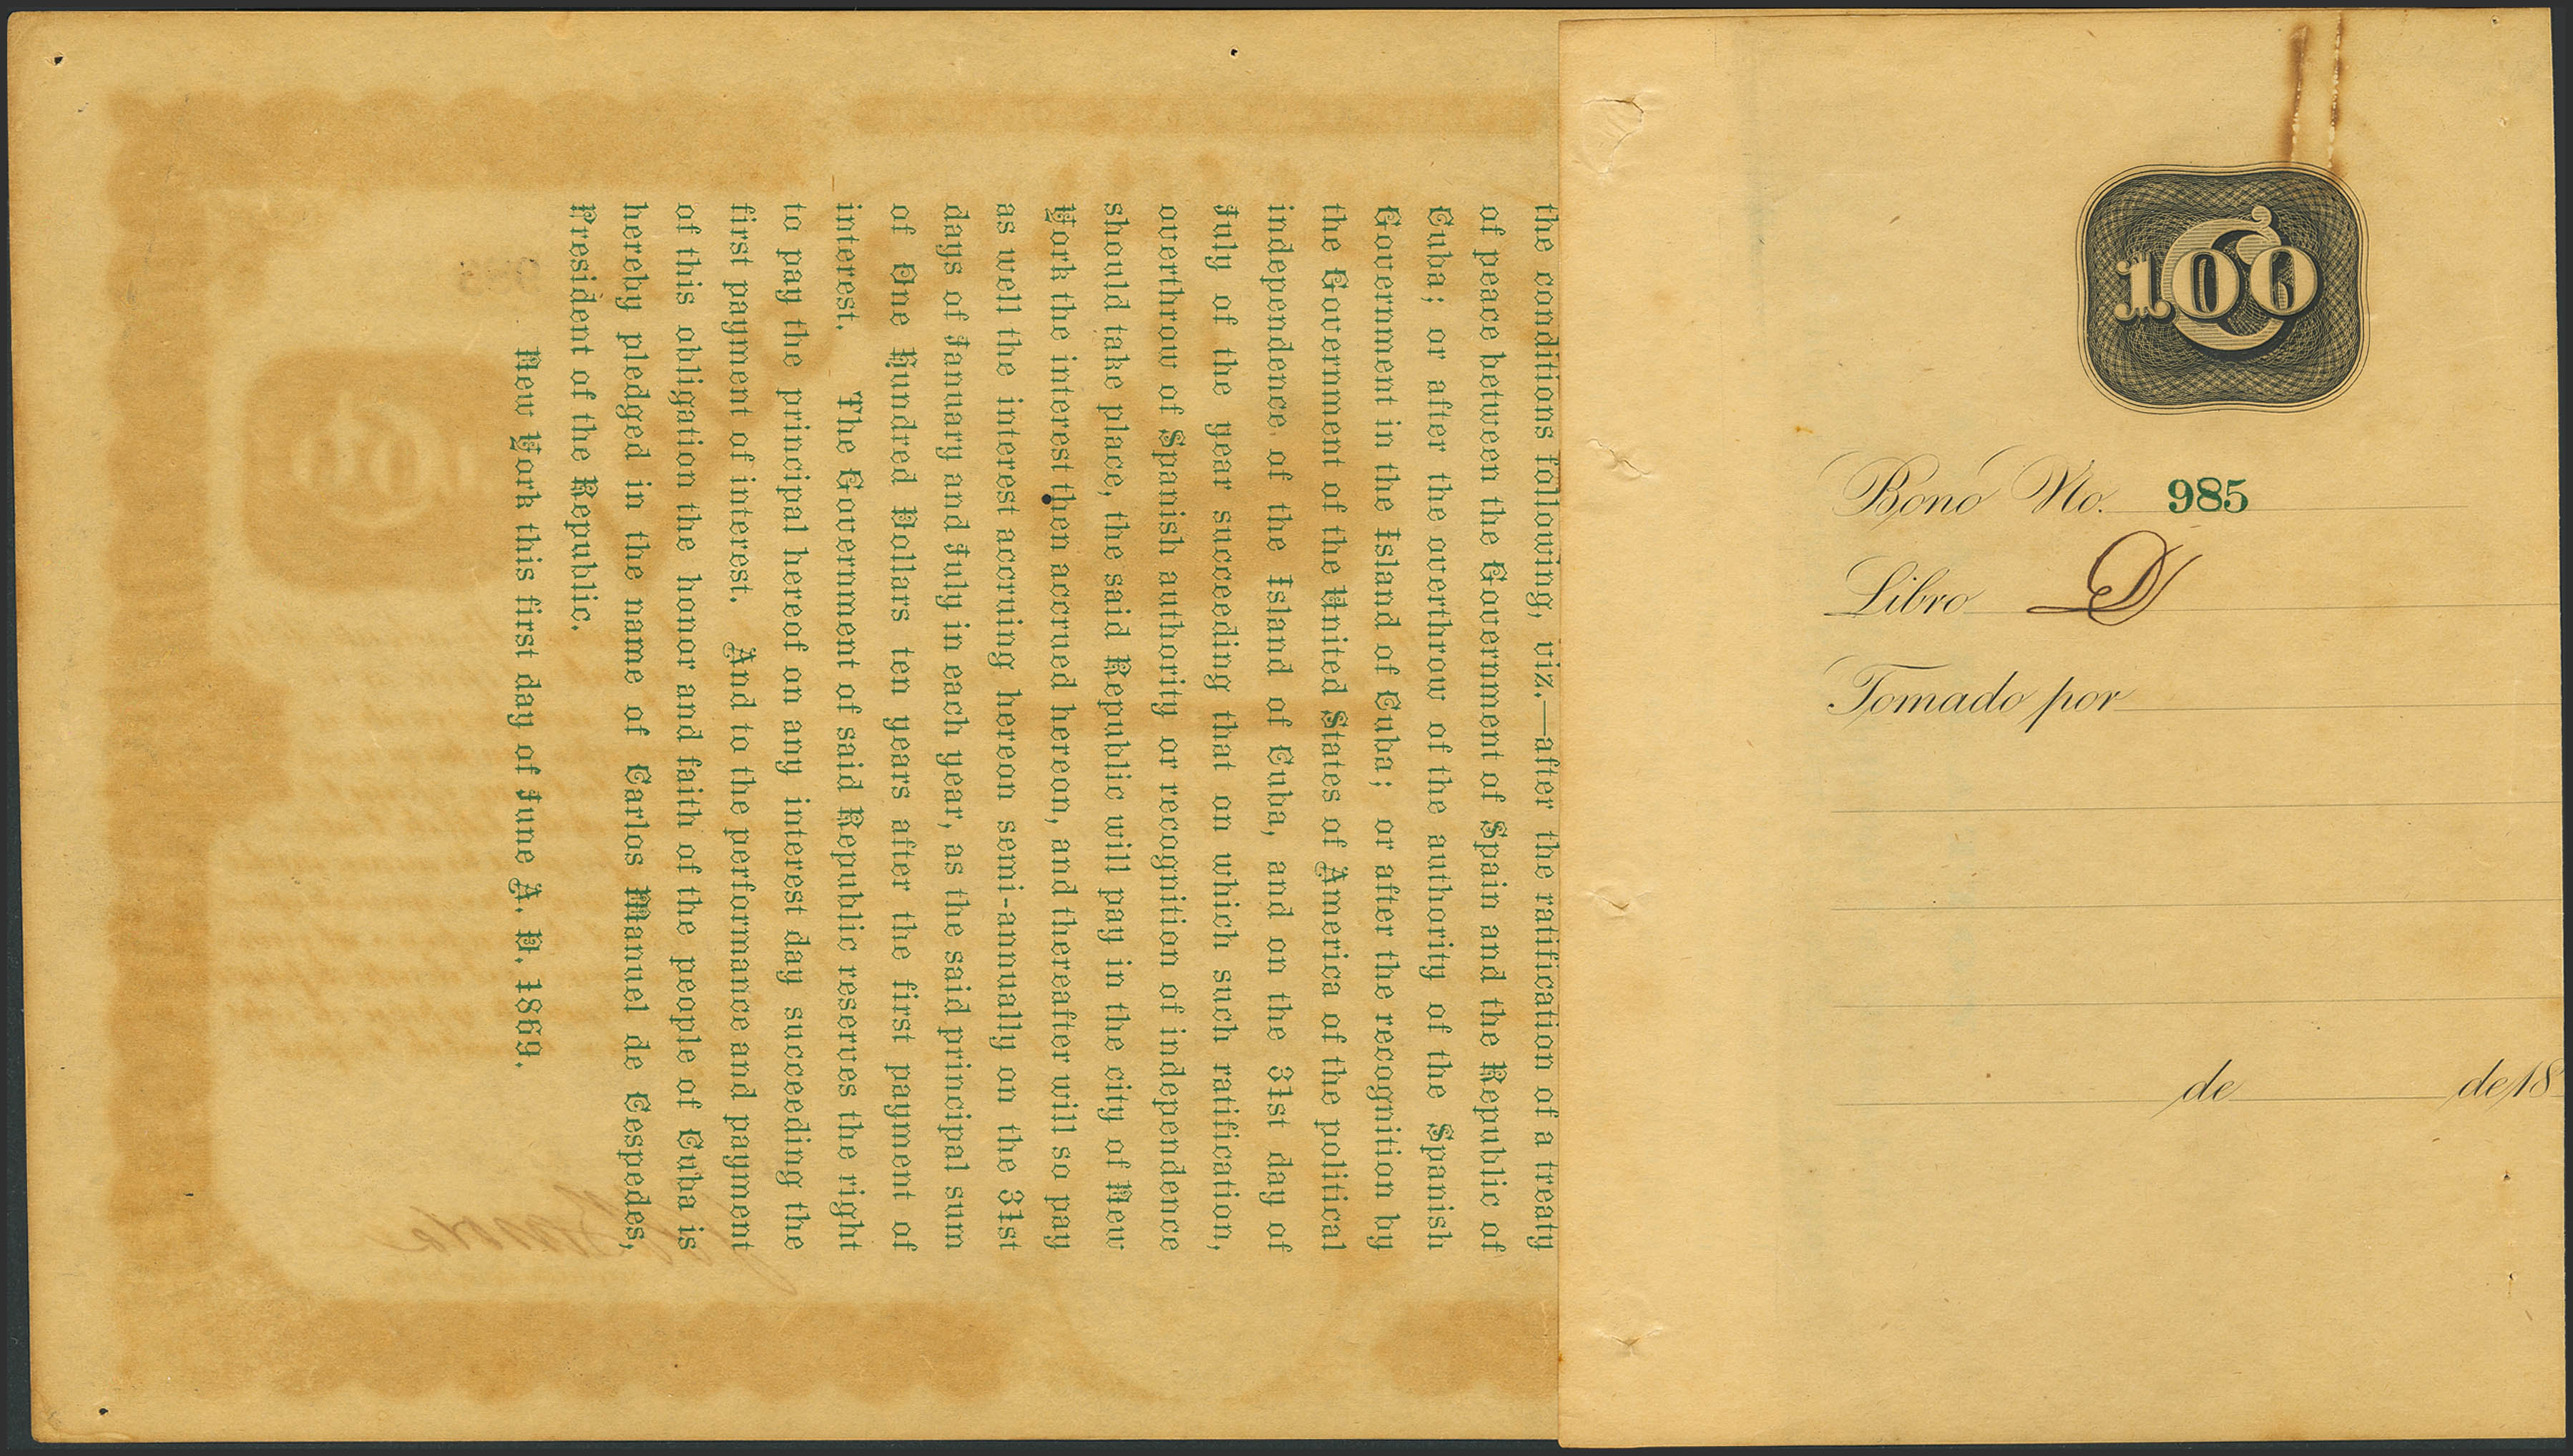 the conditions following, viz.—after the ratification of a treaty
of peace between the Government of Spain and the Republic of
Cuba; or after the overthrow of the authority of the Spanish
Government in the Island of Cuba; or after the recognition by
the Government of the United States of America of the political
independence of the Island of Cuba, and on the 31st day of
July of the year succeeding that on which such ratification,
overthrow of Spanish authority or recognition of independence
should take place, the said Republic will pay in the city of New
York the interest then accrued hereon, and thereafter will so pay
as well the interest accruing hereon semi-annually on the 31st
days of January and July in each year, as the said principal sum
of One Hundred Dollars ten years after the first payment of
interest. The Government of said Republic reserves the right
to pay the principal hereof on any interest day succeeding the
first payment of interest. And to the performance and payment
of this obligation the honor and faith of the people of Cuba is
hereby pledged in the name of Carlos Manuel de Cespedes,
President of the Republic.
New York this first day of June A. D. 1869.
C
100
Bono No. 985
Libro D
Tomado por
de de 18